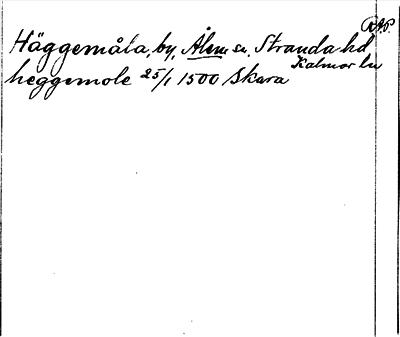 RAP.
Häggemåla, by, Ålem sn. Stranda hd
Kalmar län
heggemole 25/1 1500 Skara